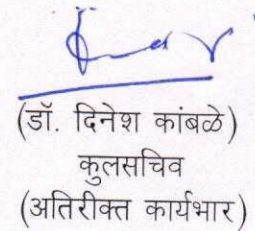 (डॉ. दिनेश कांबळे)
कुलसचिव
(अतिरीक्त कार्यभार)